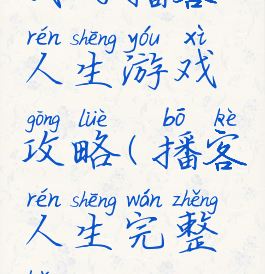 播客
rén shēng yóu xì
人生游戏
gōng lüè bō kè
攻略(播客
rén shēng wán zhěng
人生完整